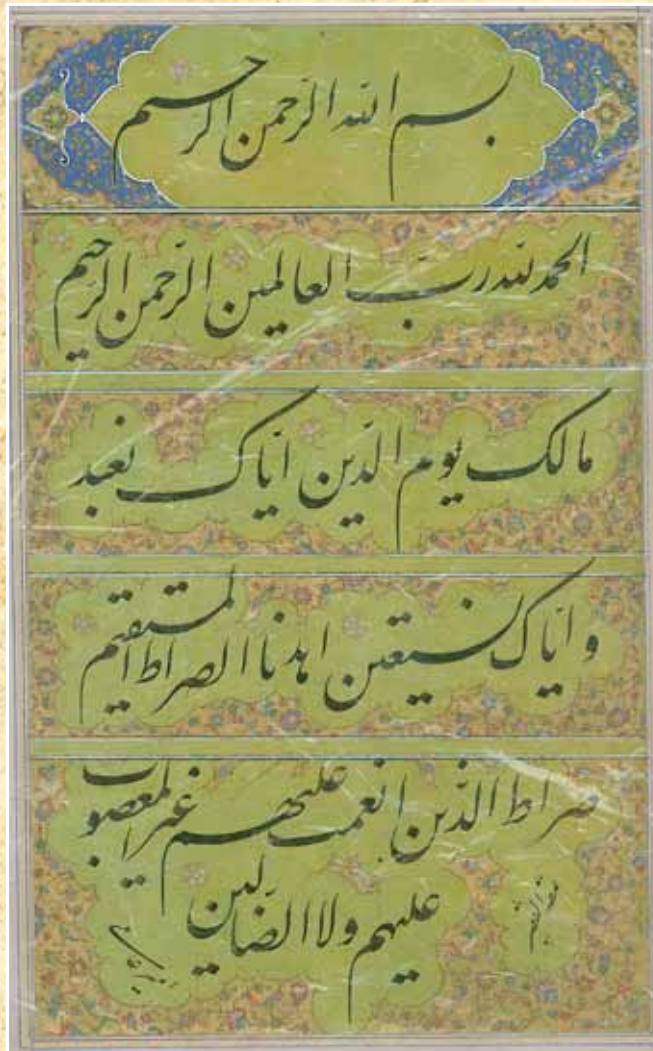 بسم الله الرّحمن الرّحیم
الحمد لله ربّ العالمین الرّحمن الرّحیم
مالک یوم الدّین ایّاک نعبد
وایّاک نستعین اهدنا الصراط المستقیم
صراط الذّین انعمت علیهم غیر المغضوب
علیهم ولا الضالّین